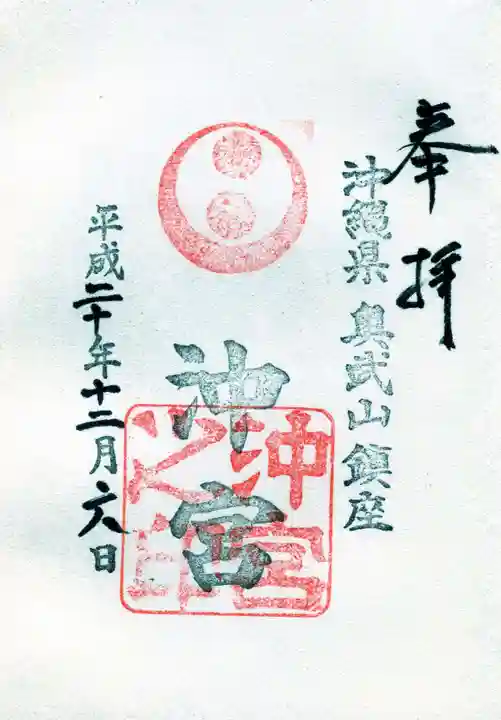 奉拝
沖縄県 奥武山鎮座
沖宮
沖宮之印
平成二十年十二月六日